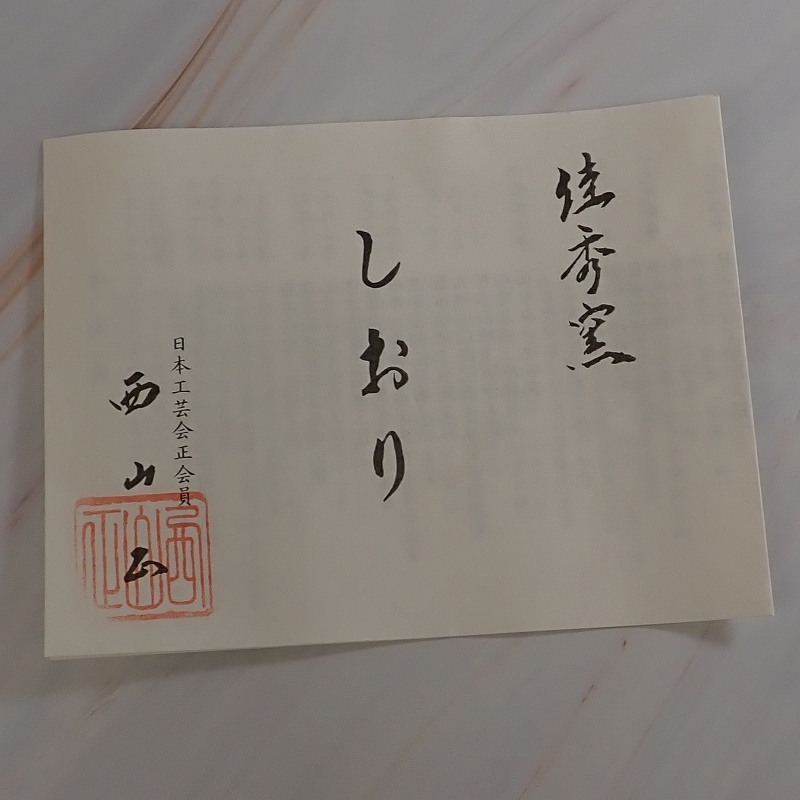 佳秀窯
しおり
日本工芸会正会員
西山 正
西山正